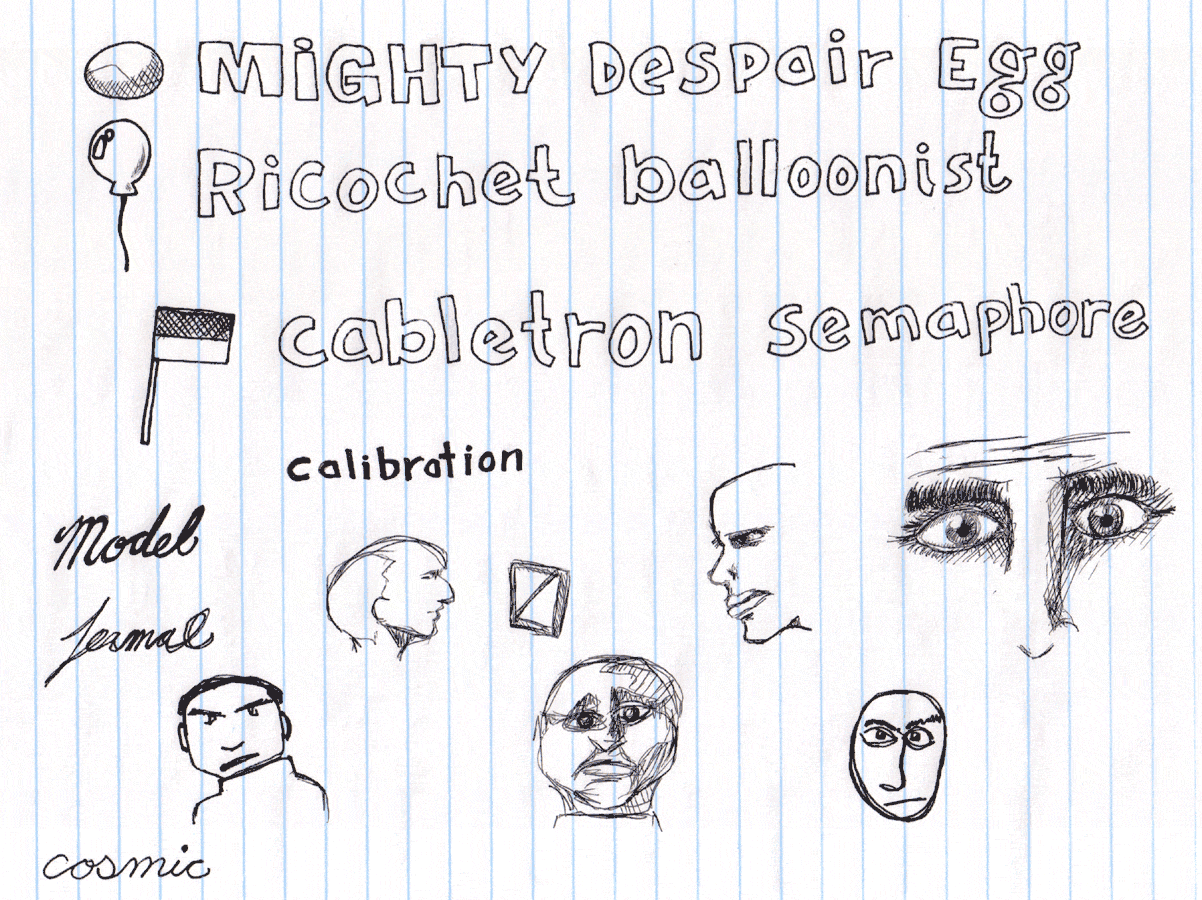 MiGHTY Despair Egg
Ricochet balloonist
cabletron semaphore
calibration
Model
cosmic